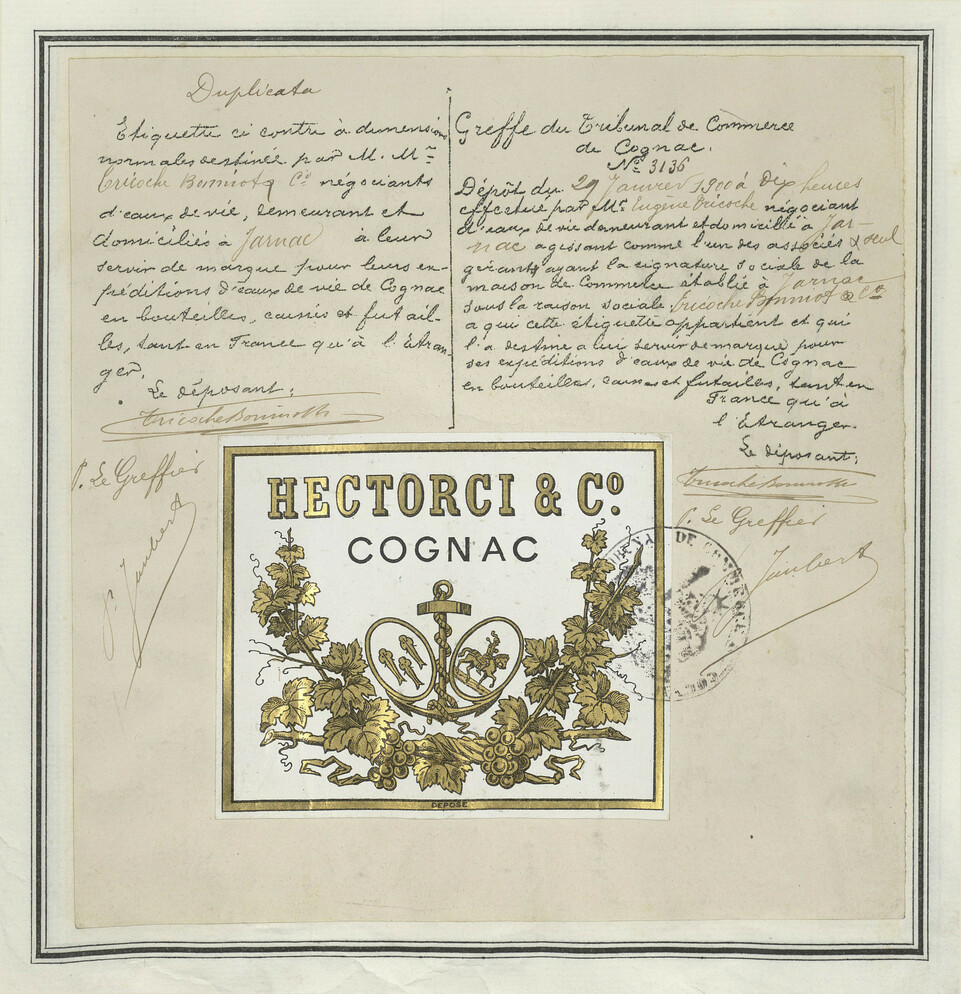 Duplicata
Etiquette ci contre à dimensions
normales destinée par M. Mrs
Tricoche Bonniot & Co négociants
d'eaux de vie, demeurant et
domiciliés à Jarnac à leur
servir de marque pour leurs ex-
péditions d'eaux de vie de Cognac
en bouteilles, caisses et futail-
les, tant en France qu'à l'Etran-
ger.
Le déposant:
Tricoche Bonniot & Co
P. Le Greffier
Jaubert
Greffe du Tribunal de Commerce
de Cognac.
No 3136
Dépôt du 29 Janvier 1900 à Dix heures
effectué par Mr Eugène Tricoche négociant
d'eaux de vie demeurant et domicilié à Jar-
nac agissant comme l'un des associés & seul
gérant ayant la signature sociale de la
maison de Commerce établie à Jarnac
sous la raison sociale Tricoche Bonniot & Co
a qui cette étiquette appartient et qui
l'a destine a lui servir de marque pour
ses expéditions d'eaux de vie de Cognac
en bouteilles, caisses et futailles, tant en
France qu'à
l'Etranger.
Le déposant:
Tricoche Bonniot & Co
P. Le Greffier
Jaubert
HECTORCI & Co.
COGNAC
DÉPOSÉ
DE COMMERCE